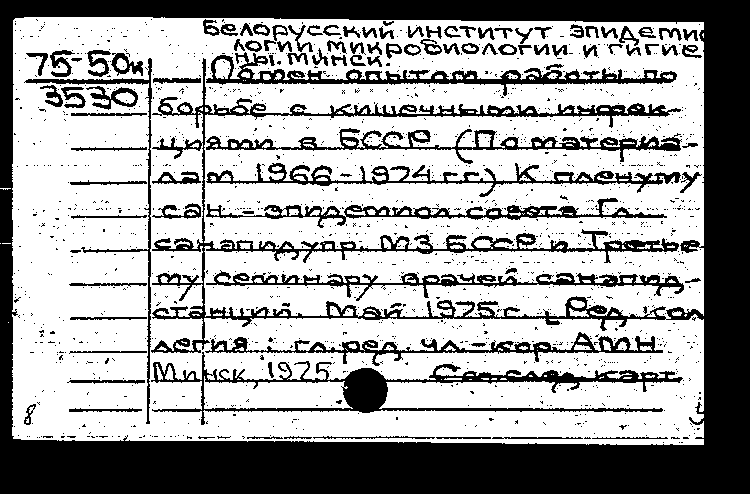 Белорусский институт эпидемио
логии, микробиологии и гигие
ны. Минск.
75-50к
3530
Обмен опытом работы по
борьбе с кишечными инфек-
циями в БССР. (По материа-
лам 1966-1974 гг.) К пленуму
сан.-эпидемиол. совета Гл.
санэпидупр. МЗ БССР и Третье
му семинару врачей санэпид-
станций. Май 1975 г. [Ред. кол
легия: гл. ред. чл.-кор. АМН
Минск, 1975
См. след. карт.
8